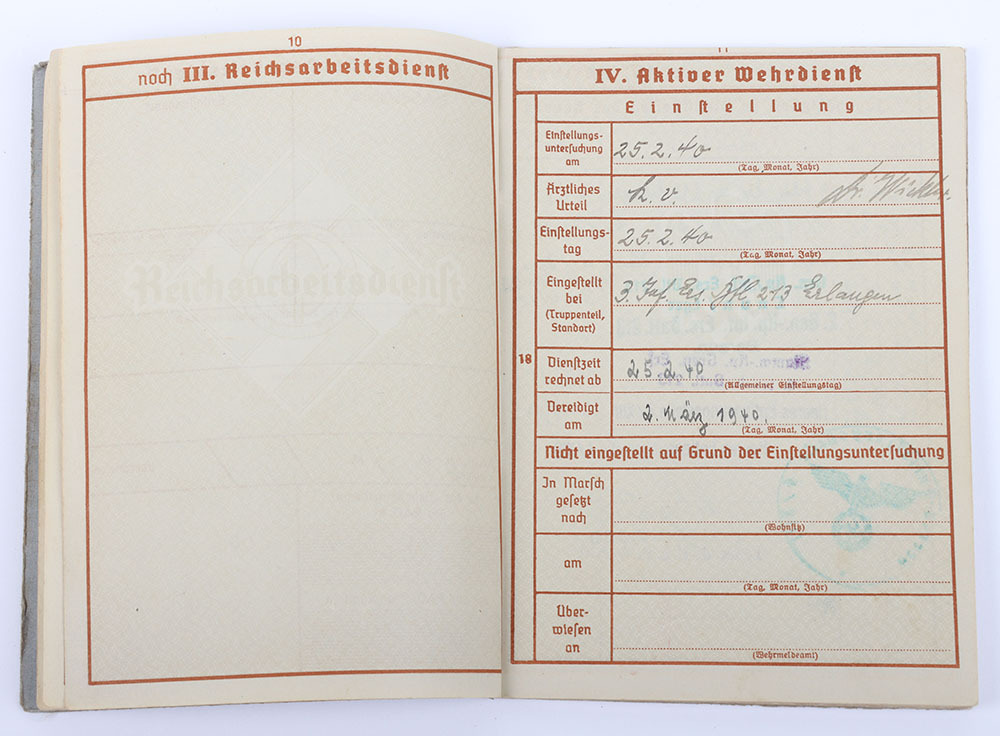 10
noch III. Reichsarbeitsdienst
Reichsarbeitsdienst
11
IV. Aktiver Wehrdienst
Einstellung
Einstellungs-
untersuchung
am
25.2.40
(Tag, Monat, Jahr)
Ärztliches
Urteil
k. v.
Dr.
Einstellungs-
tag
25.2.40
(Tag, Monat, Jahr)
Eingestellt
bei
(Truppenteil,
Standort)
3. Inf. Ers. Btl. 213 Erlangen
18
Dienstzeit
rechnet ab
25.2.40
(Allgemeiner Einstellungstag)
Vereidigt
am
2. März 1940.
(Tag, Monat, Jahr)
Nicht eingestellt auf Grund der Einstellungsuntersuchung
In Marsch
gesetzt
nach
(Wohnsitz)
am
(Tag, Monat, Jahr)
Über-
wiesen
an
(Wehrmeldeamt)